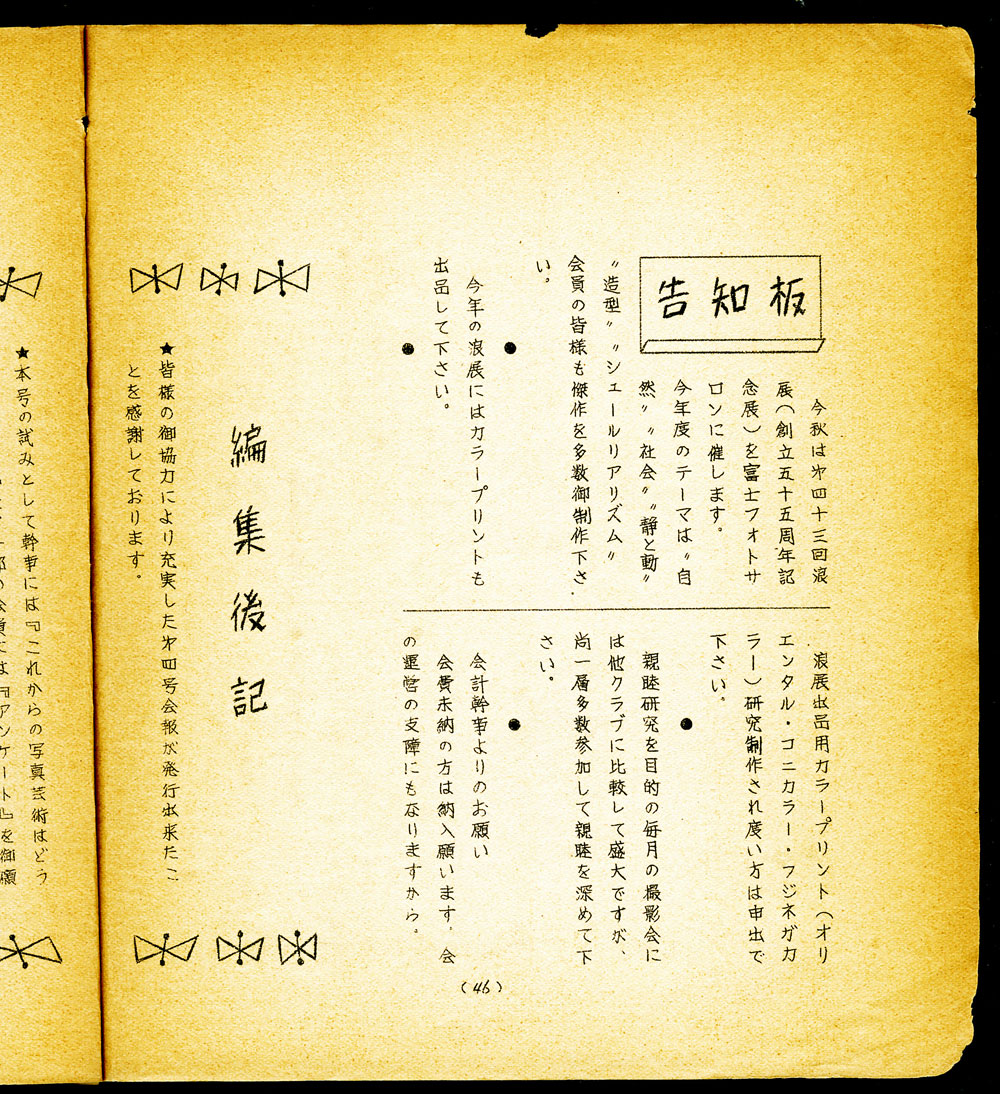 告知板
今秋は才四十三回浪
展(創立五十五周年記
念展)を富士フォトサ
ロンに催します。
今年度のテーマは〃自
然〃〃社会〃〃静と動〃
〃造型〃〃シュールリアリズム〃
会員の皆様も傑作を多数御制作下さ
い。
●
今年の浪展にはカラープリントも
出品して下さい。
●
浪展出品用カラープリント(オリ
エンタル・コニカラー・フジネガカ
ラー)研究制作され度い方は申出で
下さい。
●
親睦研究を目的の毎月の撮影会に
は他クラブに比較して盛大ですが、
尚一層多数参加して親睦を深めて下
さい。
●
会計幹事よりのお願い
会費未納の方は納入願います。会
の運営の支障にもなりますから。
編集後記
★皆様の御協力により充実した才四号会報が発行出来たこ
とを感謝しております。
★本号の試みとして幹事には『これからの写真芸術はどう
会員には『アンケート』を御願
(46)